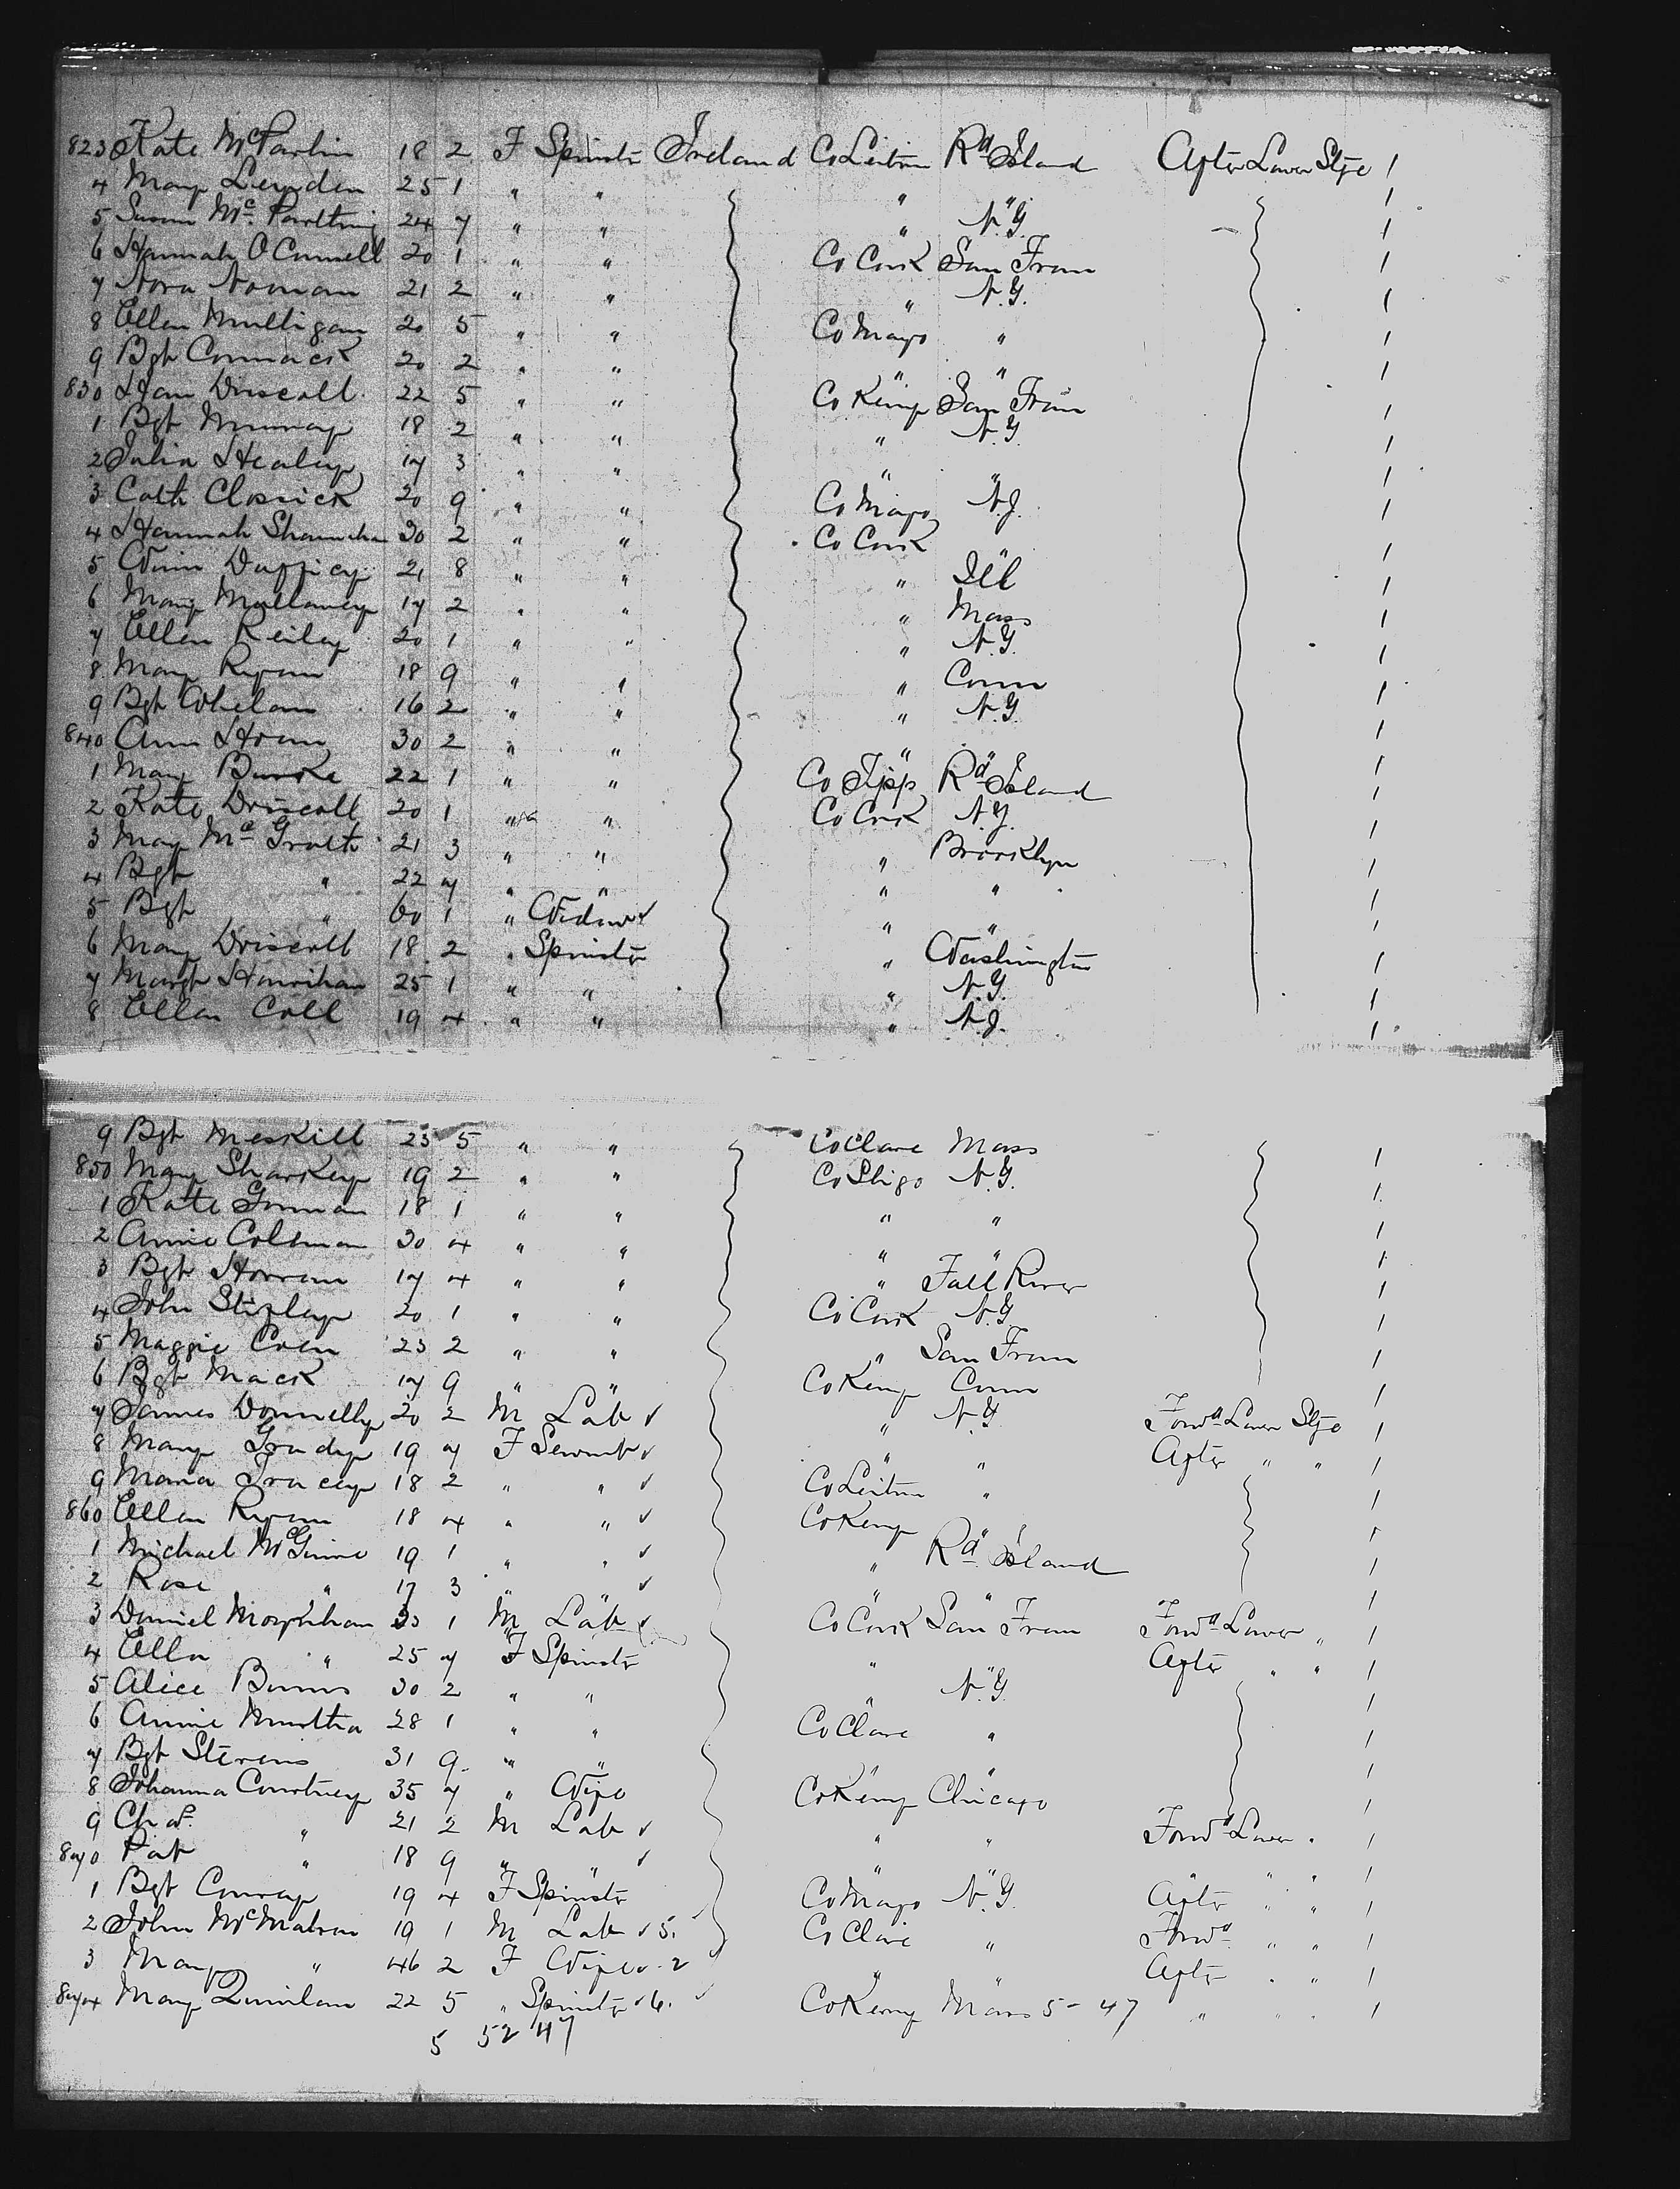 823 Kate McPartlin 18 2 F Spinstr Ireland Co Leitrim Rd Island After Lower Stge 1
4 Mary Leyden 25 1 " " " " 1
5 Susan Mc 24 7 " " " N.Y. 1
6 Hannah O Connell 20 1 " " Co Cork San Fran 1
7 Nora Noonan 21 2 " " " N.Y. 1
8 Ellen Mulligan 20 5 " " Co Mayo " 1
9 Bgt Cormack 20 2 " " " " 1
830 Han Driscoll 22 5 " " Co Kerry San Fran 1
1 Bgt Murray 18 2 " " " N.Y. 1
2 Julia Healey 17 3 " " " " 1
3 Cath Clossick 20 9 " " Co Mayo N.J. 1
4 Hannah 30 2 " " Co Cork " 1
5 Winn 21 8 " " " Ill 1
6 Mary Mullaney 17 2 " " " Mass 1
7 Ellen Reiley 20 1 " " " N.Y. 1
8 Mary Ryan 18 9 " " " Conn 1
9 Bgt Whelan 16 2 " " " N.Y. 1
840 Ann Horan 30 2 " " " " 1
1 Mary Burke 22 1 " " Co Tipp Rd Island 1
2 Kate Driscoll 20 1 " " Co Cork N.Y. 1
3 Mary Mc Grath 21 3 " " " Brooklyn 1
4 Bgt " 22 7 " " " " 1
5 Bgt " 60 1 " Widow " " 1
6 Mary Driscoll 18 2 " Spinstr " Washington 1
7 Margt Hourihan 25 1 " " " N.Y. 1
8 Ellen Coll 19 4 " " " N.J. 1
9 Bgt Meskill 23 5 " " Co Clare Mass 1
850 Mary Sharkey 19 2 " " Co Sligo N.Y. 1
1 Kate Gorman 18 1 " " " " 1
2 Annie Coleman 30 4 " " " " 1
3 Bgt Horran 17 4 " " " Fall River 1
4 John 20 1 " " Co Cork N.Y. 1
5 Maggie Coen 23 2 " " " San Fran 1
6 Bgt Mack 17 9 " " Co Kerry Conn 1
7 James Donnelly 20 2 M Lab " N.Y. Forwd Lower Stge 1
8 Mary Grady 19 7 F Servnt " " After " " 1
9 Maria Tracey 18 2 " " Co Leitrim " 1
860 Ellen Ryan 18 4 " " Co Kerry " 1
1 Michael McGuire 19 1 " " " Rd Island 1
2 Rose " 17 3 " " " 1
3 Daniel 33 1 M Lab Co Cork San Fran Forwd Lower " 1
4 Ellen " 25 7 F Spinstr " " After " " 1
5 Alice Burns 30 2 " " " N.Y. 1
6 Annie 28 1 " " Co Clare " 1
7 Bgt Stevens 31 9 " " " " 1
8 Johanna Courtney 35 7 " Wife Co Kerry Chicago 1
9 Chas " 21 2 M Lab " " Forwd Lower " 1
870 Pat " 18 9 " " " " " " 1
1 Bgt Conway 19 4 F Spinstr Co Mayo N.Y. After " " 1
2 John McMahon 19 1 M Lab 5. Co Clare " Forwd " " 1
3 Mary " 46 2 F Wife 2 " " After " " 1
874 Mary Quinlan 22 5 " Spinstr 6. Co Kerry Mass 5 - 47 " " " 1
5 52 47